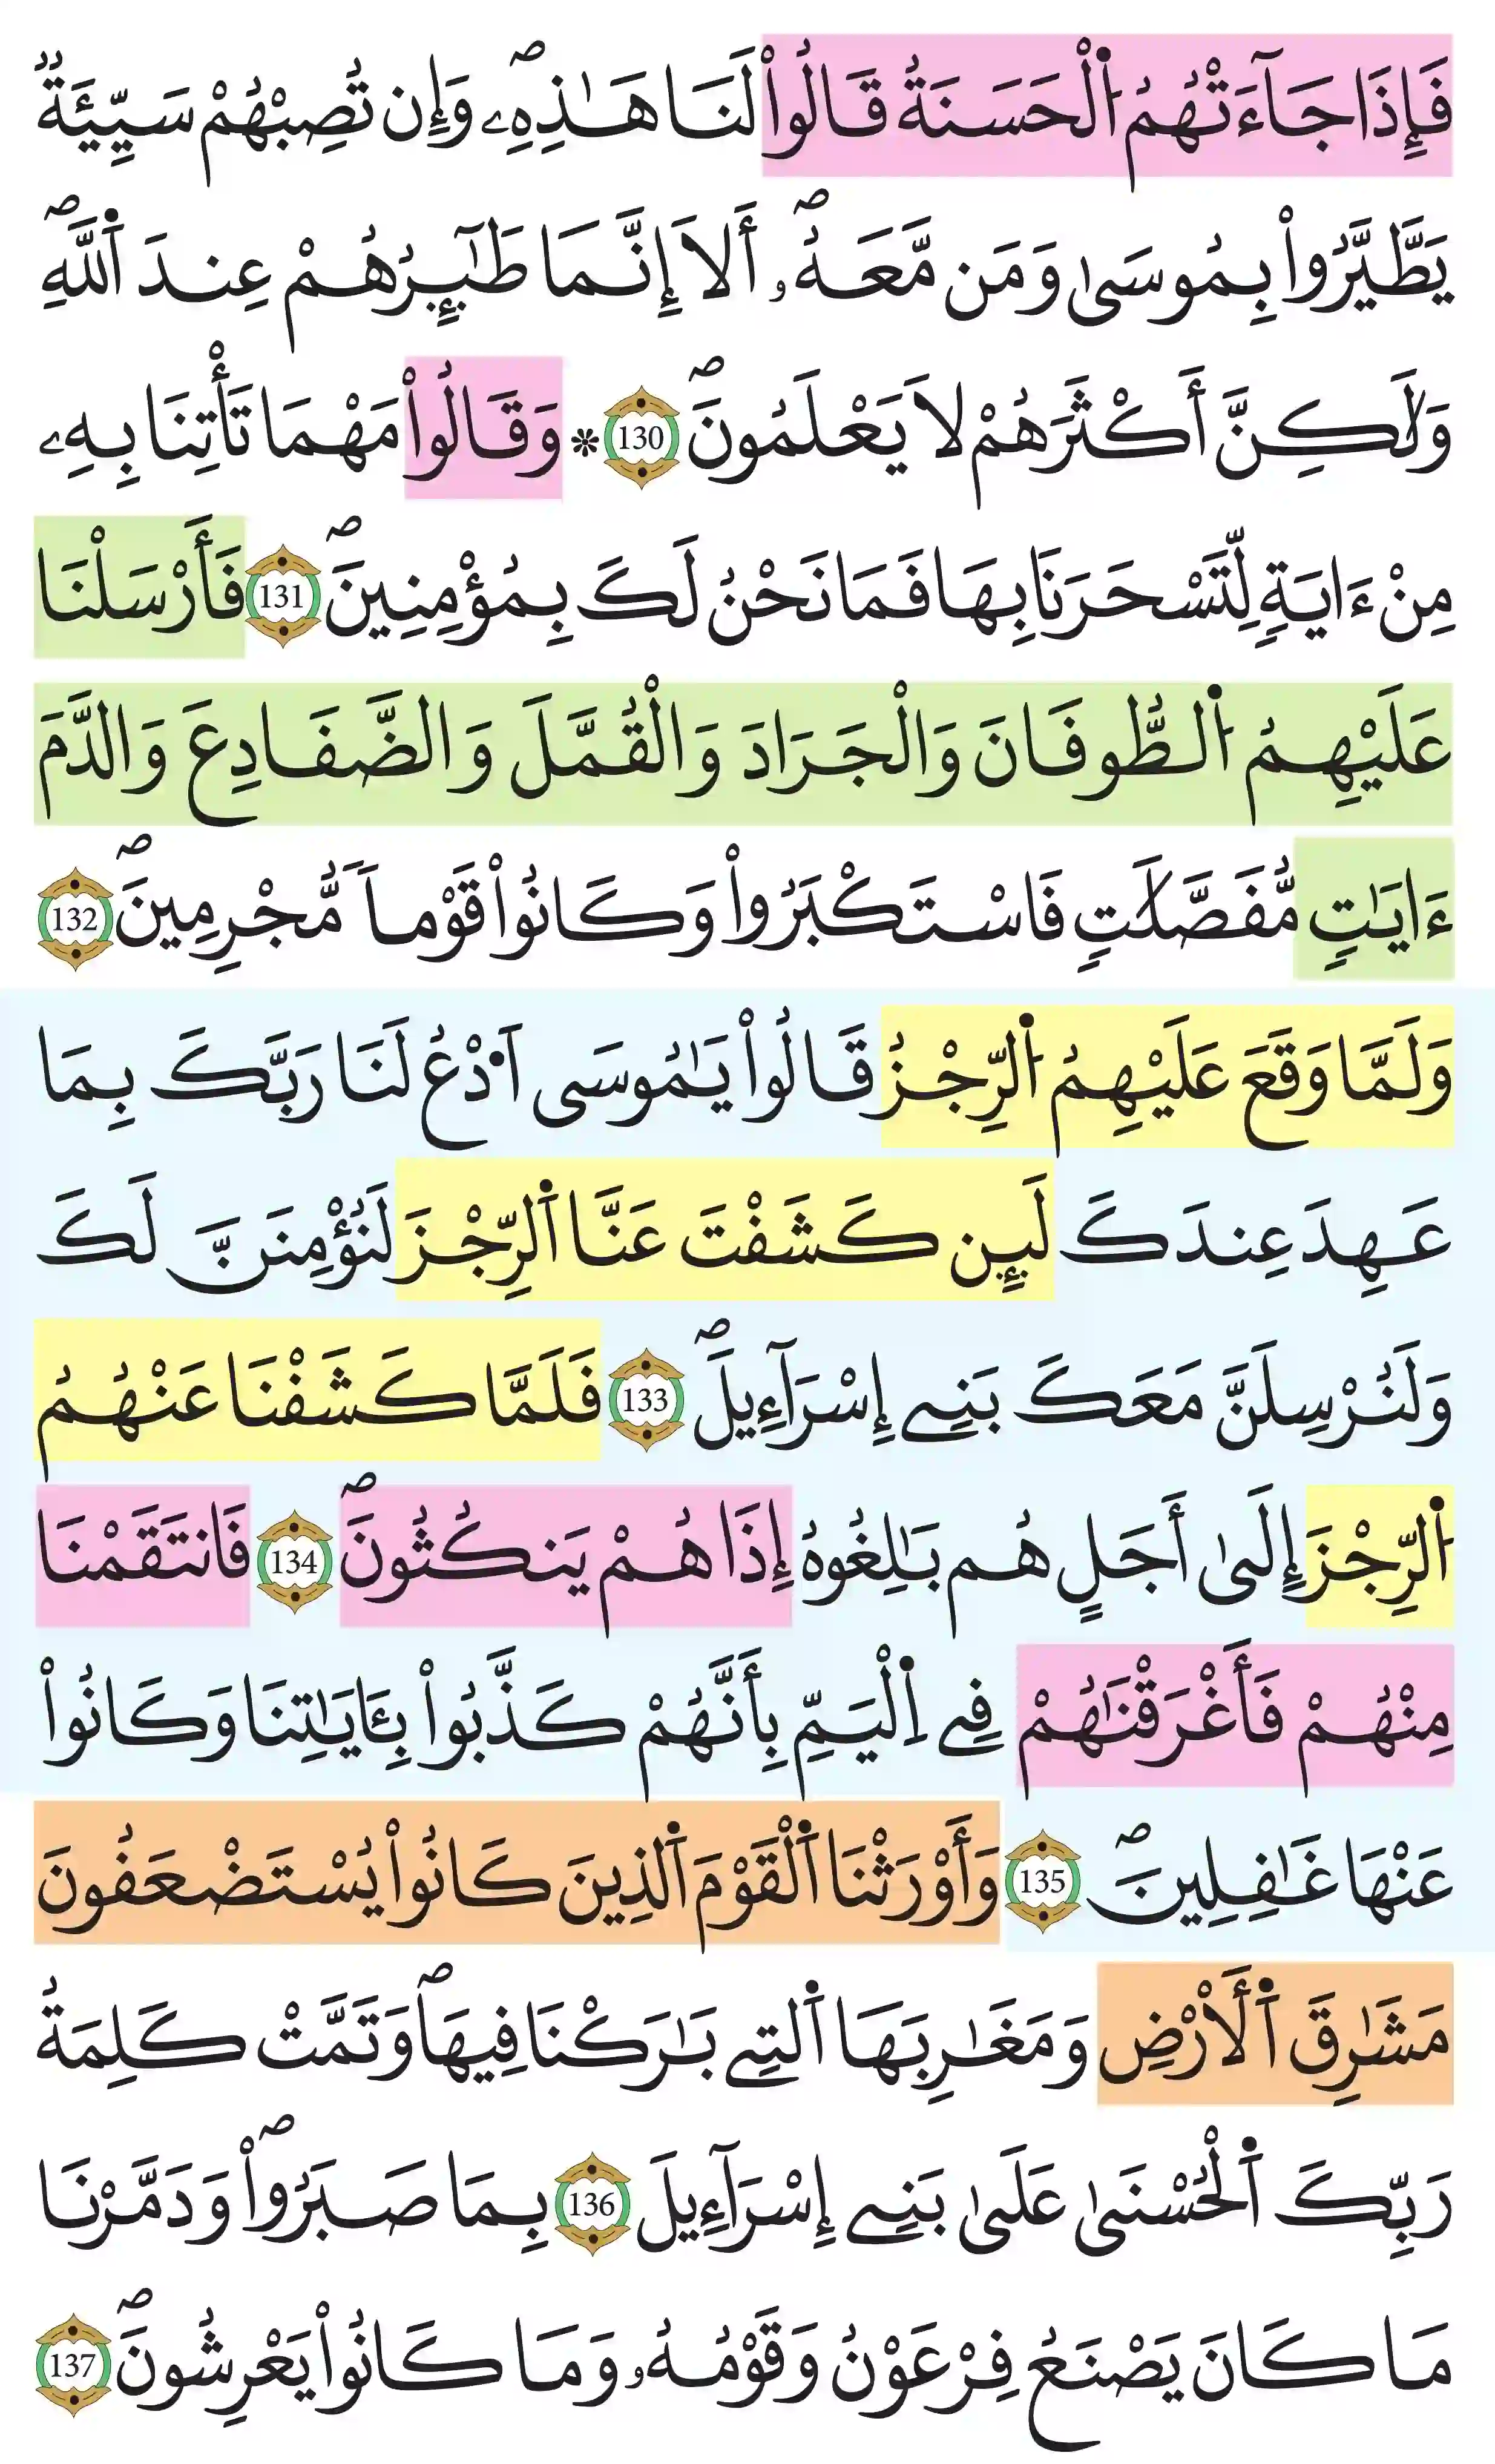 فَإِذَا جَآءَتْهُمُ اُ۬لْحَسَنَةُ قَالُواْ لَنَا هَٰذِهِۦۖ وَإِن تُصِبْهُمْ سَيِّئَةٞ
يَطَّيَّرُواْ بِمُوسَىٰ وَمَن مَّعَهُۥۖ أَلَآ إِنَّمَا طَٰٓئِرُهُمْ عِندَ اَ۬للَّهِۖ
وَلَٰكِنَّ أَكْثَرَهُمْ لَا يَعْلَمُونَۖ 130 ۞ وَقَالُواْ مَهْمَا تَأْتِنَا بِهِۦ
مِنْ ءَايَةٖ لِّتَسْحَرَنَا بِهَا فَمَا نَحْنُ لَكَ بِمُؤْمِنِينَۖ 131 فَأَرْسَلْنَا
عَلَيْهِمُ اُ۬لطُّوفَانَ وَالْجَرَادَ وَالْقُمَّلَ وَالضَّفَادِعَ وَالدَّمَ
ءَايَٰتٖ مُّفَصَّلَٰتٖ فَاسْتَكْبَرُواْ وَكَانُواْ قَوْماٗ مُّجْرِمِينَۖ 132
وَلَمَّا وَقَعَ عَلَيْهِمُ اُ۬لرِّجْزُ قَالُواْ يَٰمُوسَى اَ۟دْعُ لَنَا رَبَّكَ بِمَا
عَهِدَ عِندَكَ لَئِن كَشَفْتَ عَنَّا اَ۬لرِّجْزَ لَنُؤْمِنَنَّ لَكَ
وَلَنُرْسِلَنَّ مَعَكَ بَنِےٓ إِسْرَآءِيلَۖ 133 فَلَمَّا كَشَفْنَا عَنْهُمُ
اُ۬لرِّجْزَ إِلَىٰٓ أَجَلٍ هُم بَٰلِغُوهُ إِذَا هُمْ يَنكُثُونَۖ 134 فَانتَقَمْنَا
مِنْهُمْ فَأَغْرَقْنَٰهُمْ فِے اِ۬لْيَمِّ بِأَنَّهُمْ كَذَّبُواْ بِـَٔايَٰتِنَا وَكَانُواْ
عَنْهَا غَٰفِلِينَۖ 135 وَأَوْرَثْنَا اَ۬لْقَوْمَ اَ۬لذِينَ كَانُواْ يُسْتَضْعَفُونَ
مَشَٰرِقَ اَ۬لْأَرْضِ وَمَغَٰرِبَهَا اَ۬لتِے بَٰرَكْنَا فِيهَاۖ وَتَمَّتْ كَلِمَةُ
رَبِّكَ اَ۬لْحُسْنَىٰ عَلَىٰ بَنِےٓ إِسْرَآءِيلَ 136 بِمَا صَبَرُواْۖ وَدَمَّرْنَا
مَا كَانَ يَصْنَعُ فِرْعَوْنُ وَقَوْمُهُۥ وَمَا كَانُواْ يَعْرِشُونَۖ 137